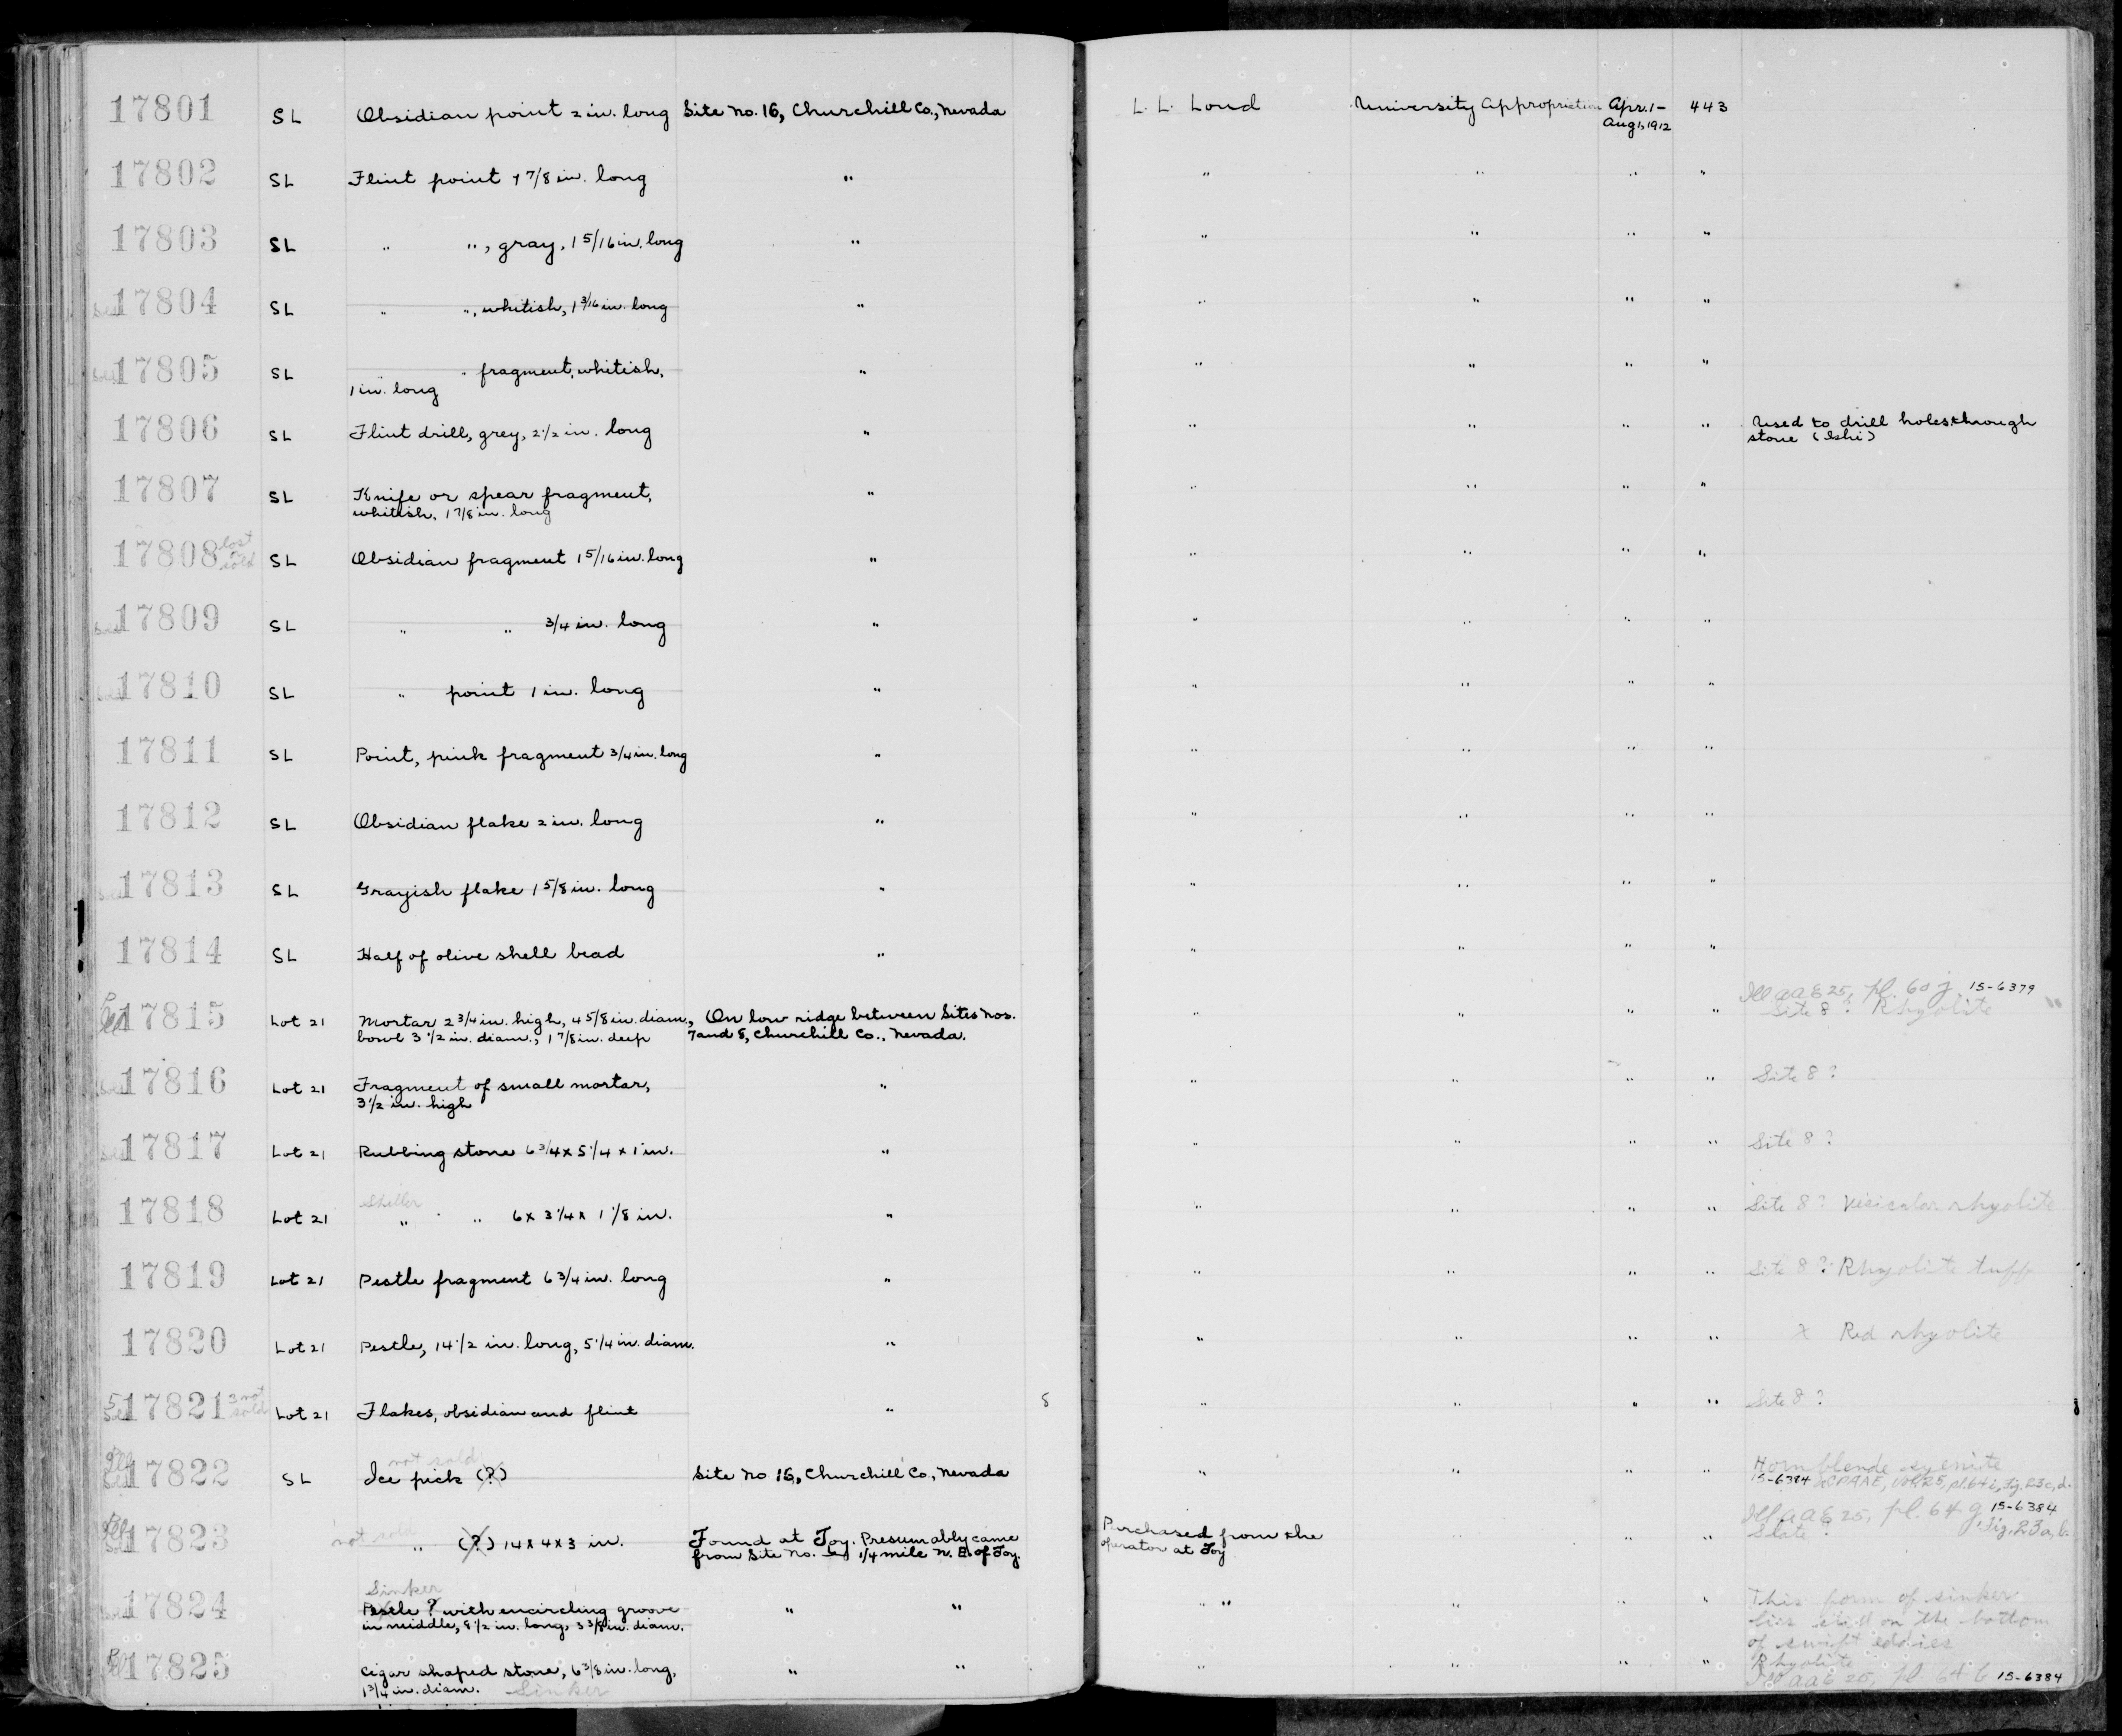 17801 SL Obsidian point 2 in. long Site No. 16, Churchill Co., Nevada L. L. Loud University Appropriation Apr. 1- 443
Aug 1, 1912
17802 SL Flint point 1 7/8 in. long " " " " "
17803 SL " ", gray, 1 5/16 in. long " " " " "
17804 SL " ", whitish, 1 3/16 in. long " " " " "
17805 SL " " fragment, whitish, " " " " "
1 in. long
17806 SL Flint drill, grey, 2 1/2 in. long " " " " " Used to drill holes through
stone (Ishi)
17807 SL Knife or spear fragment, " " " " "
whitish, 1 7/8 in. long
17808 lost or sold SL Obsidian fragment 1 5/16 in. long " " " " "
17809 SL " " 3/4 in. long " " " " "
17810 SL " point 1 in. long " " " " "
17811 SL Point, pink fragment 3/4 in. long " " " " "
17812 SL Obsidian flake 2 in. long " " " " "
17813 SL Grayish flake 1 5/8 in. long " " " " "
17814 SL Half of olive shell bead " " " " "
Ill AAE 25, pl. 60 j 15-6379
17815 Lot 21 Mortar 2 3/4 in. high, 4 5/8 in. diam., On low ridge between Sites Nos. " " " " Site 8 ? Rhyolite
bowl 3 1/2 in. diam., 1 7/8 in. deep 7 and 8, Churchill Co., Nevada.
17816 Lot 21 Fragment of small mortar, " " " " " Site 8 ?
3 1/2 in. high
17817 Lot 21 Rubbing stone 6 3/4 x 5 1/4 x 1 in. " " " " " Site 8 ?
Sheller
17818 Lot 21 " " 6 x 3 1/4 x 1 1/8 in. " " " " " Site 8 ? Vesicular rhyolite
17819 Lot 21 Pestle fragment 6 3/4 in. long " " " " " Site 8 ? Rhyolite tuff
17820 Lot 21 Pestle, 14 1/2 in. long, 5 1/4 in. diam. " " " " " x Red rhyolite
5 17821 3 not sold Lot 21 Flakes, obsidian and flint " 8 " " " " Site 8 ?
not sold
17822 SL Ice pick (?) Site No 16, Churchill Co., Nevada " " " " Hornblende syenite
15-6384 UCPAAE, vol. 25, pl. 64 i, fig. 23 c, d.
Ill AAE 25, pl. 64 g 15-6384
17823 not sold " (?) 14 x 4 x 3 in. Found at Toy. Presumably came Purchased from the " " " Slate ? fig. 23 a, b.
from Site No. 1/4 mile N. E. of Toy. operator at Toy
Sinker
17824 Pestle ? with encircling groove " " " " " " " This form of sinker
in middle, 8 1/2 in. long, 3 3/8 in. diam. lies still on the bottom
of swift eddies
17825 Cigar shaped stone, 6 3/8 in. long, " " " " " " Rhyolite
1 3/4 in. diam. Sinker Ill AAE 25, pl 64 b 15-6384